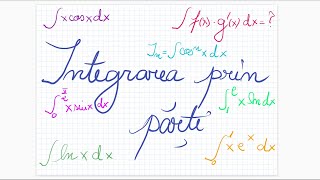 ∫x cosx dx
∫f(x)·g'(x)dx=?
Iₙ=∫cosⁿx dx
Integrarea prin
∫₀^(π/2) x sinx dx
părți
∫₁^e x ln dx
∫ln x dx
∫₀^1 x eˣ dx